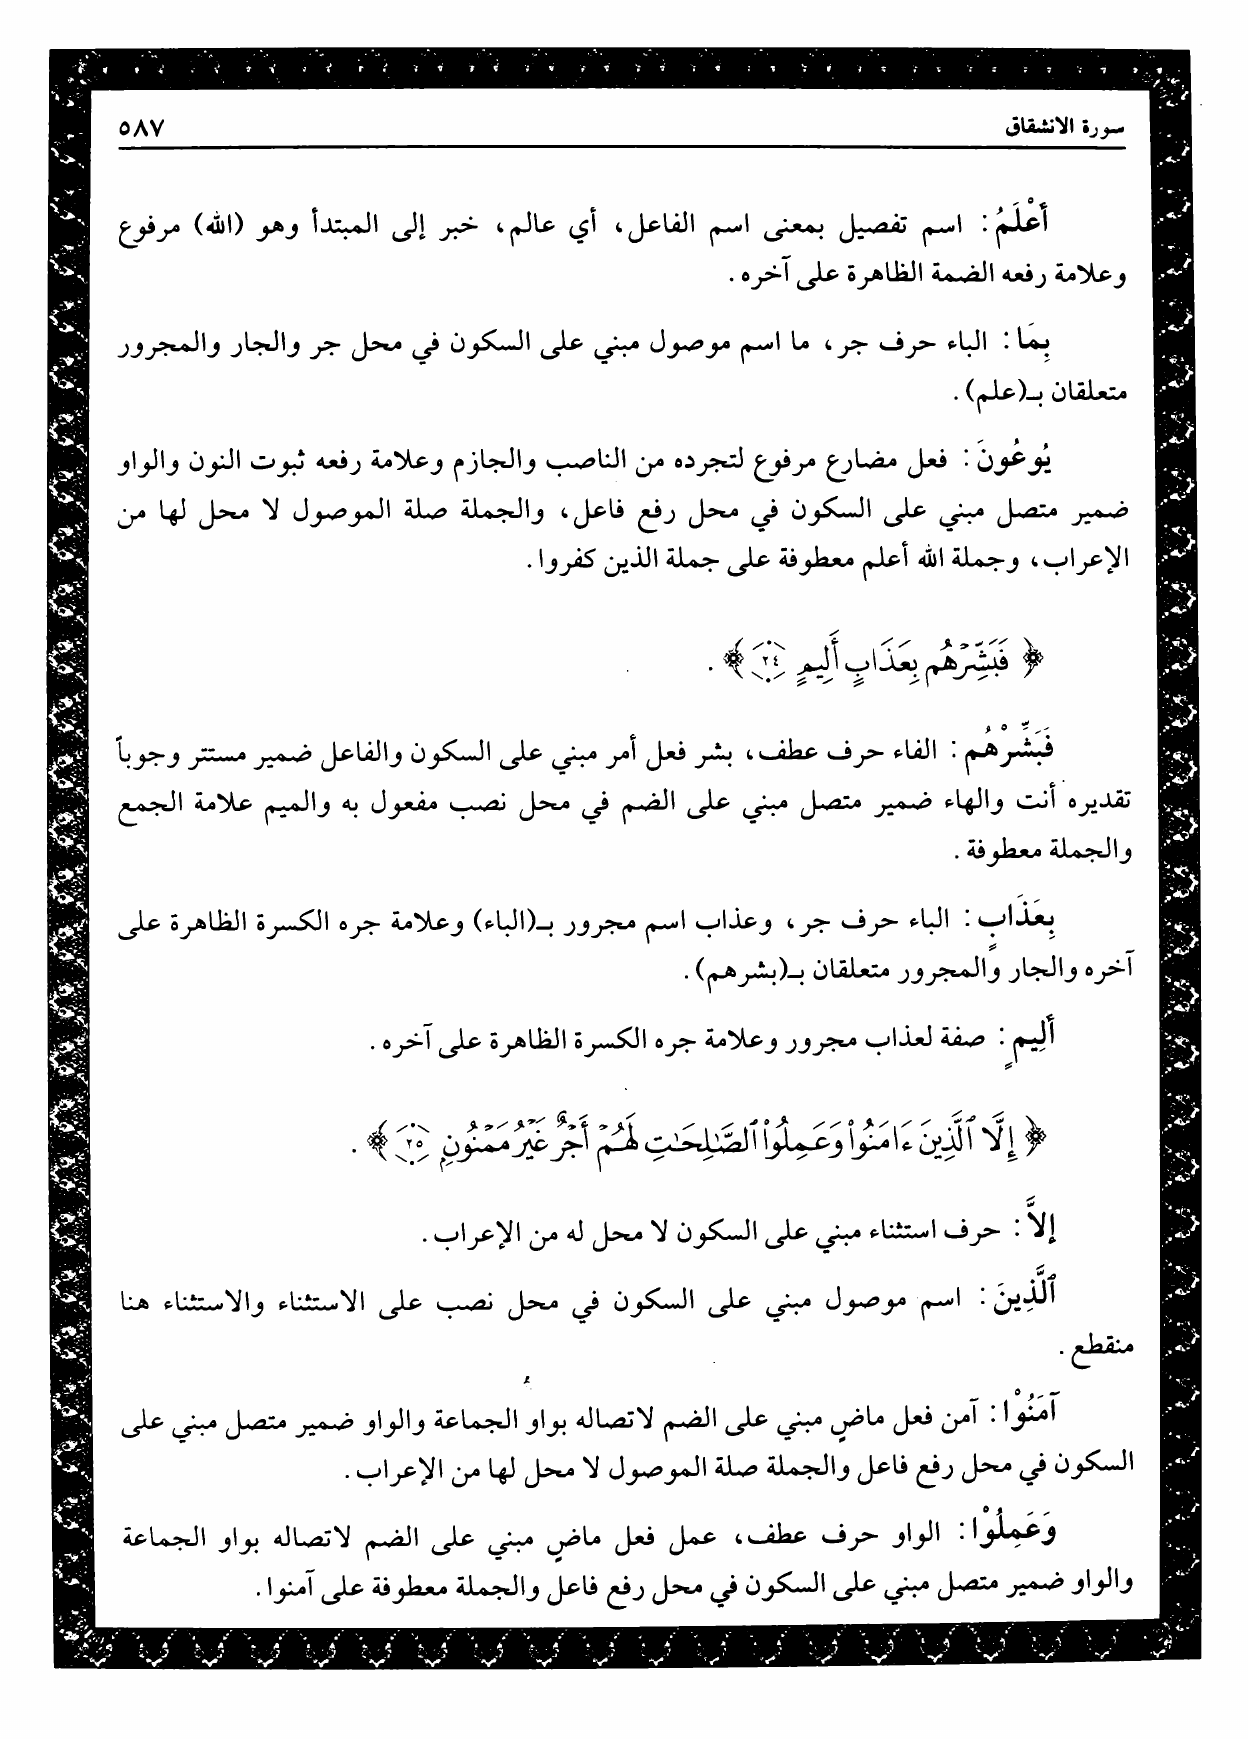 سورة الانشقاق ٥٨٧
أَعْلَمُ : اسم تفصيل بمعنى اسم الفاعل، أي عالم، خبر إلى المبتدأ وهو (الله) مرفوع
وعلامة رفعه الضمة الظاهرة على آخره .
بِمَا : الباء حرف جر، ما اسم موصول مبني على السكون في محل جر والجار والمجرور
متعلقان بـ(علم) .
يُوعُونَ : فعل مضارع مرفوع لتجرده من الناصب والجازم وعلامة رفعه ثبوت النون والواو
ضمير متصل مبني على السكون في محل رفع فاعل، والجملة صلة الموصول لا محل لها من
الإعراب، وجملة الله أعلم معطوفة على جملة الذين كفروا.
﴿ فَبَشِّرْهُم بِعَذَابٍ أَلِيمٍ ٢٤ ﴾ .
فَبَشِّرْهُم : الفاء حرف عطف، بشر فعل أمر مبني على السكون والفاعل ضمير مستتر وجوباً
تقديره أنت والهاء ضمير متصل مبني على الضم في محل نصب مفعول به والميم علامة الجمع
والجملة معطوفة .
بِعَذَابٍ : الباء حرف جر، وعذاب اسم مجرور بـ(الباء) وعلامة جره الكسرة الظاهرة على
آخره والجار والمجرور متعلقان بـ(بشرهم).
أَلِيمٍ : صفة لعذاب مجرور وعلامة جره الكسرة الظاهرة على آخره .
﴿ إِلَّا ٱلَّذِينَ ءَامَنُوا۟ وَعَمِلُوا۟ ٱلصَّـٰلِحَـٰتِ لَهُمْ أَجْرٌ غَيْرُ مَمْنُونٍ ٢٥ ﴾ .
إلاَّ : حرف استثناء مبني على السكون لا محل له من الإعراب.
ٱلَّذِينَ : اسم موصول مبني على السكون في محل نصب على الاستثناء والاستثناء هنا
منقطع .
آمَنُوْا : آمن فعل ماضٍ مبني على الضم لاتصاله بواو الجماعة والواو ضمير متصل مبني على
السكون في محل رفع فاعل والجملة صلة الموصول لا محل لها من الإعراب.
وَعَمِلُوْا : الواو حرف عطف، عمل فعل ماضٍ مبني على الضم لاتصاله بواو الجماعة
والواو ضمير متصل مبني على السكون في محل رفع فاعل والجملة معطوفة على آمنوا.